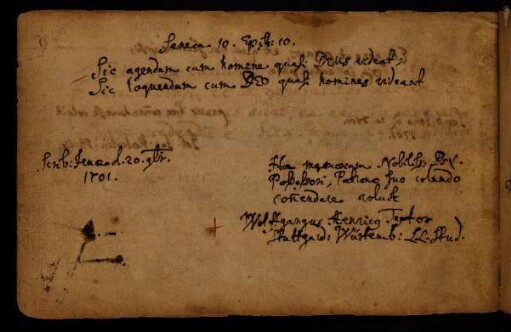 Seneca 10. Epist: 10.
Sic agendum cum homine quasi Deus videat;
Sic loquendum cum DEO quasi homines videant
Scrib: Jenae d. 20. 9br.
1701.
Hac memoriam Nobiliss. Dn.
Possessori, Patrono suo colendo
com̄endare voluit
Wolffgangus Henricus
Stuttgard: Würtemb: LL. Stud.